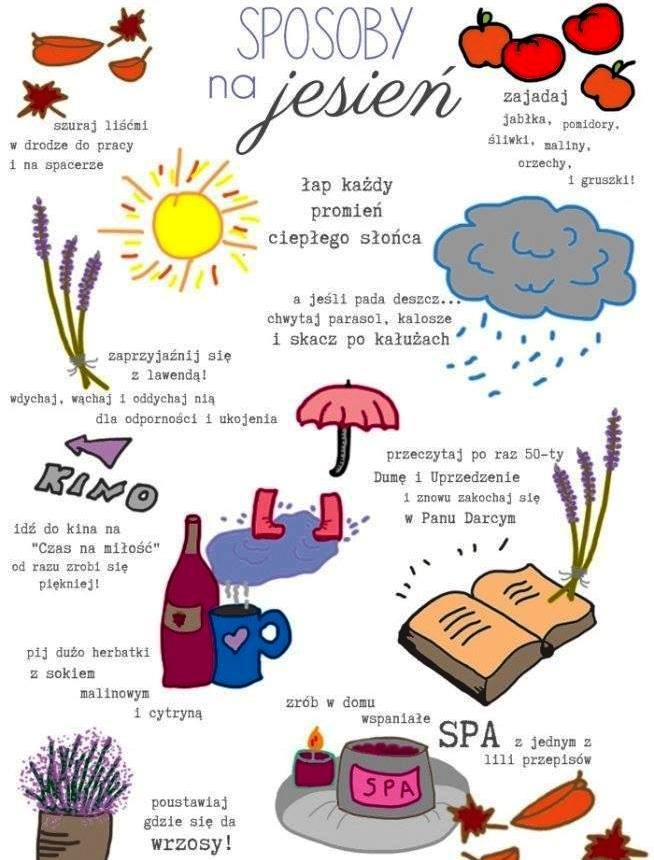 SPOSOBY
na jesień
zajadaj
jabłka, pomidory,
śliwki, maliny,
orzechy,
i gruszki!
szuraj liśćmi
w drodze do pracy
i na spacerze
łap każdy
promień
ciepłego słońca
a jeśli pada deszcz...
chwytaj parasol, kalosze
i skacz po kałużach
zaprzyjaźnij się
z lawendą!
wdychaj, wąchaj i oddychaj nią
dla odporności i ukojenia
przeczytaj po raz 50-ty
Dumę i Uprzedzenie
i znowu zakochaj się
w Panu Darcym
KINO
idź do kina na
"Czas na miłość"
od razu zrobi się
piękniej!
pij dużo herbatki
z sokiem
malinowym
i cytryną
zrób w domu
wspaniałe
SPA z jednym z
lili przepisów
SPA
poustawiaj
gdzie się da
wrzosy!